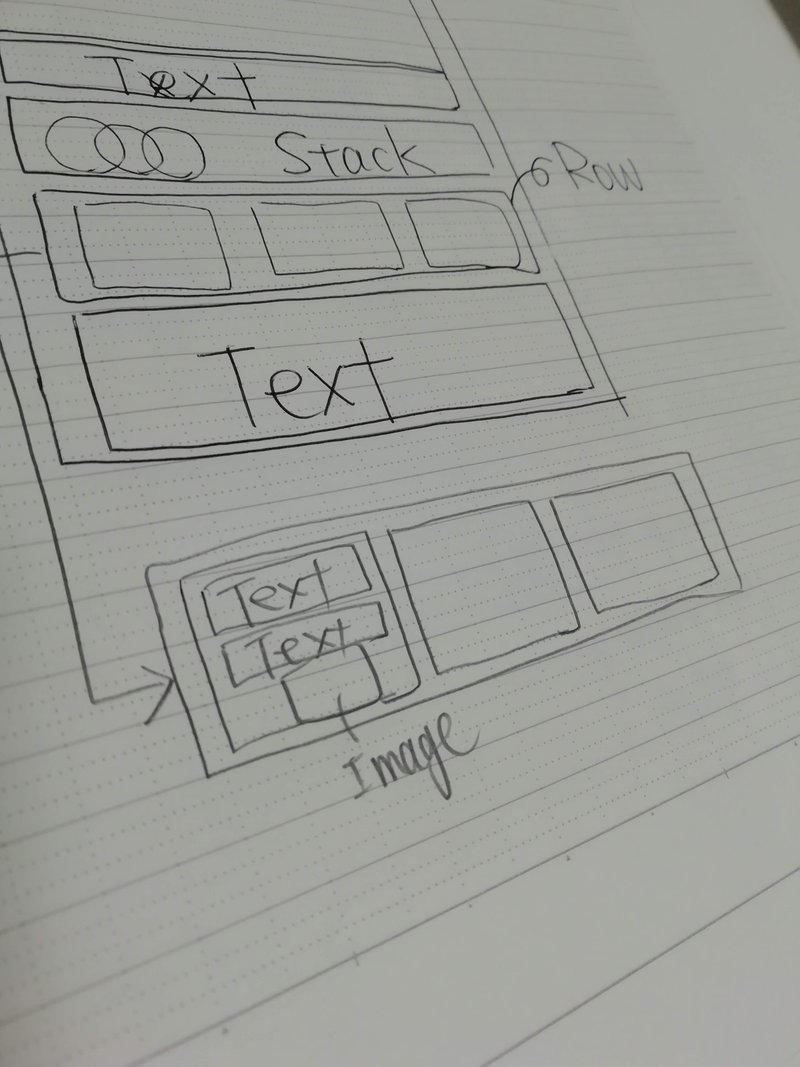 Text
Stack
Row
Text
Text
Text
Image